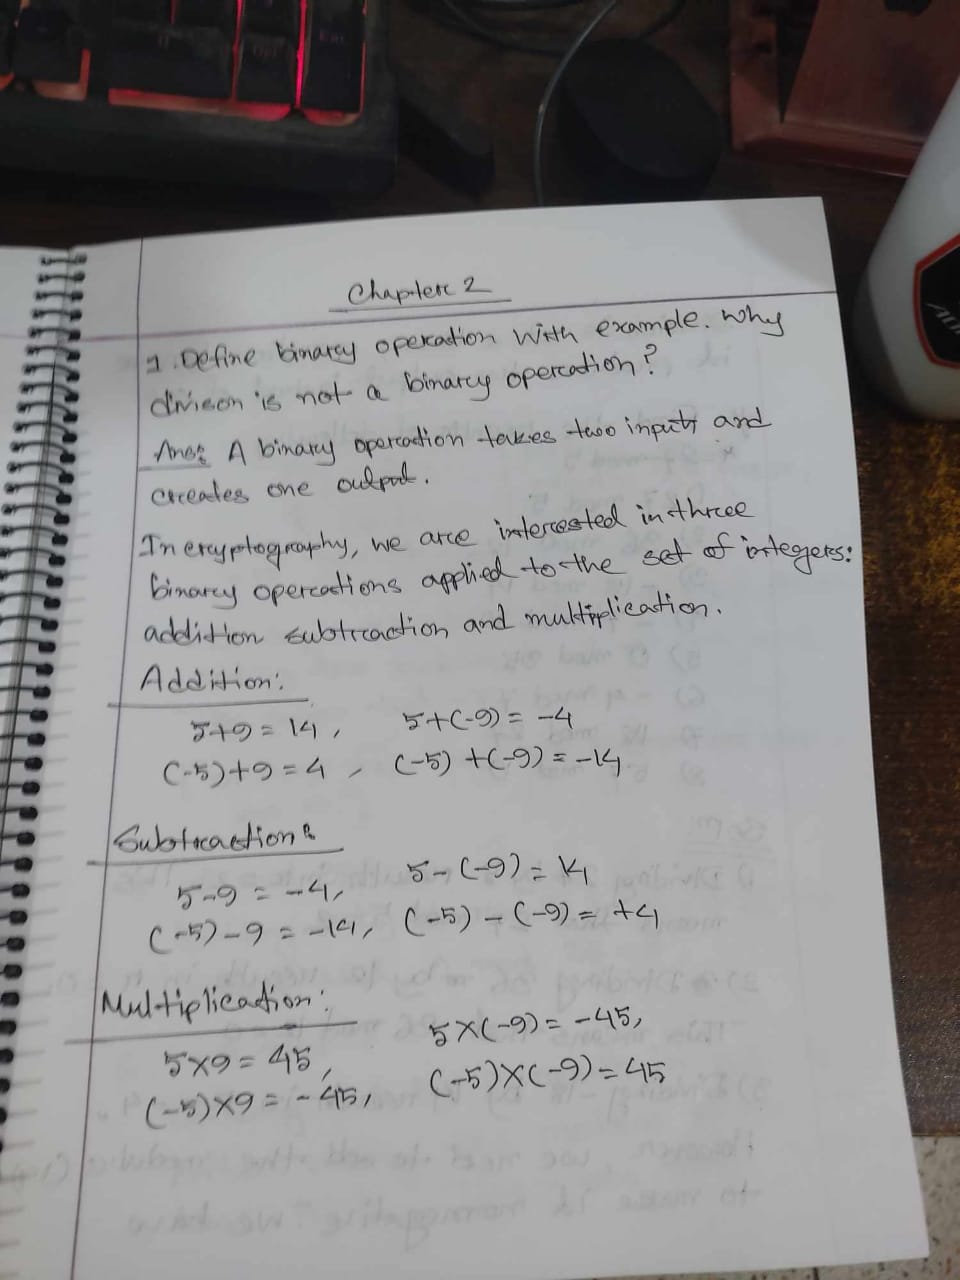 Chapter 2
1. Define binary operation with example. Why
divison is not a binary operation?
Ans: A binary operation takes two inputs and
creates one output.
In cryptography, we are interested in three
binary operations applied to the set of integers:
addition subtraction and multiplication.
Addition:
5+9 = 14, 5+(-9) = -4
(-5)+9 = 4, (-5)+(-9) = -14
Subtraction:
5-9 = -4, 5-(-9) = 14
(-5)-9 = -14, (-5)-(-9) = +4
Multiplication:
5×9 = 45, 5×(-9) = -45,
(-5)×9 = -45, (-5)×(-9) = 45